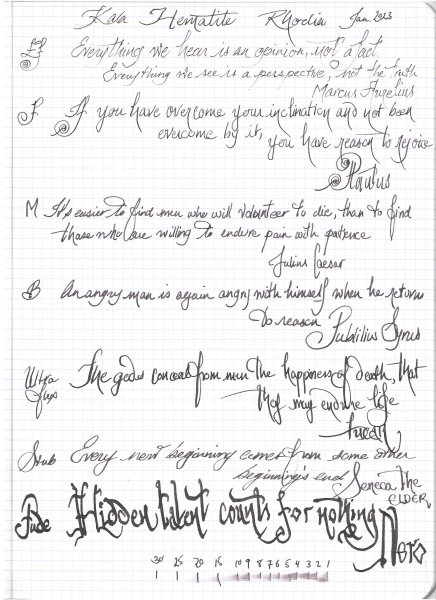 Kala Hematite Rhodia Jan. 2023
EF Everything we hear is an opinion, not a fact
Everything we see is a perspective, not the truth
Marcus Aurelius
F If you have overcome your inclination and not been
overcome by it, you have reason to rejoice
Plautus
M It's easier to find men who will volunteer to die, than to find
those who are willing to endure pain with patience
Julius Caesar
B An angry man is again angry with himself when he returns
to reason Publilius Syrus
Ultra
flex
The gods conceal from men the happiness of death, that
they may endure life
Lucan
Stub Every new beginning comes from some other
beginning's end Seneca The
ELDER
Fude Hidden talent counts for nothing
Nero
30 25 20 15 10 9 8 7 6 5 4 3 2 1